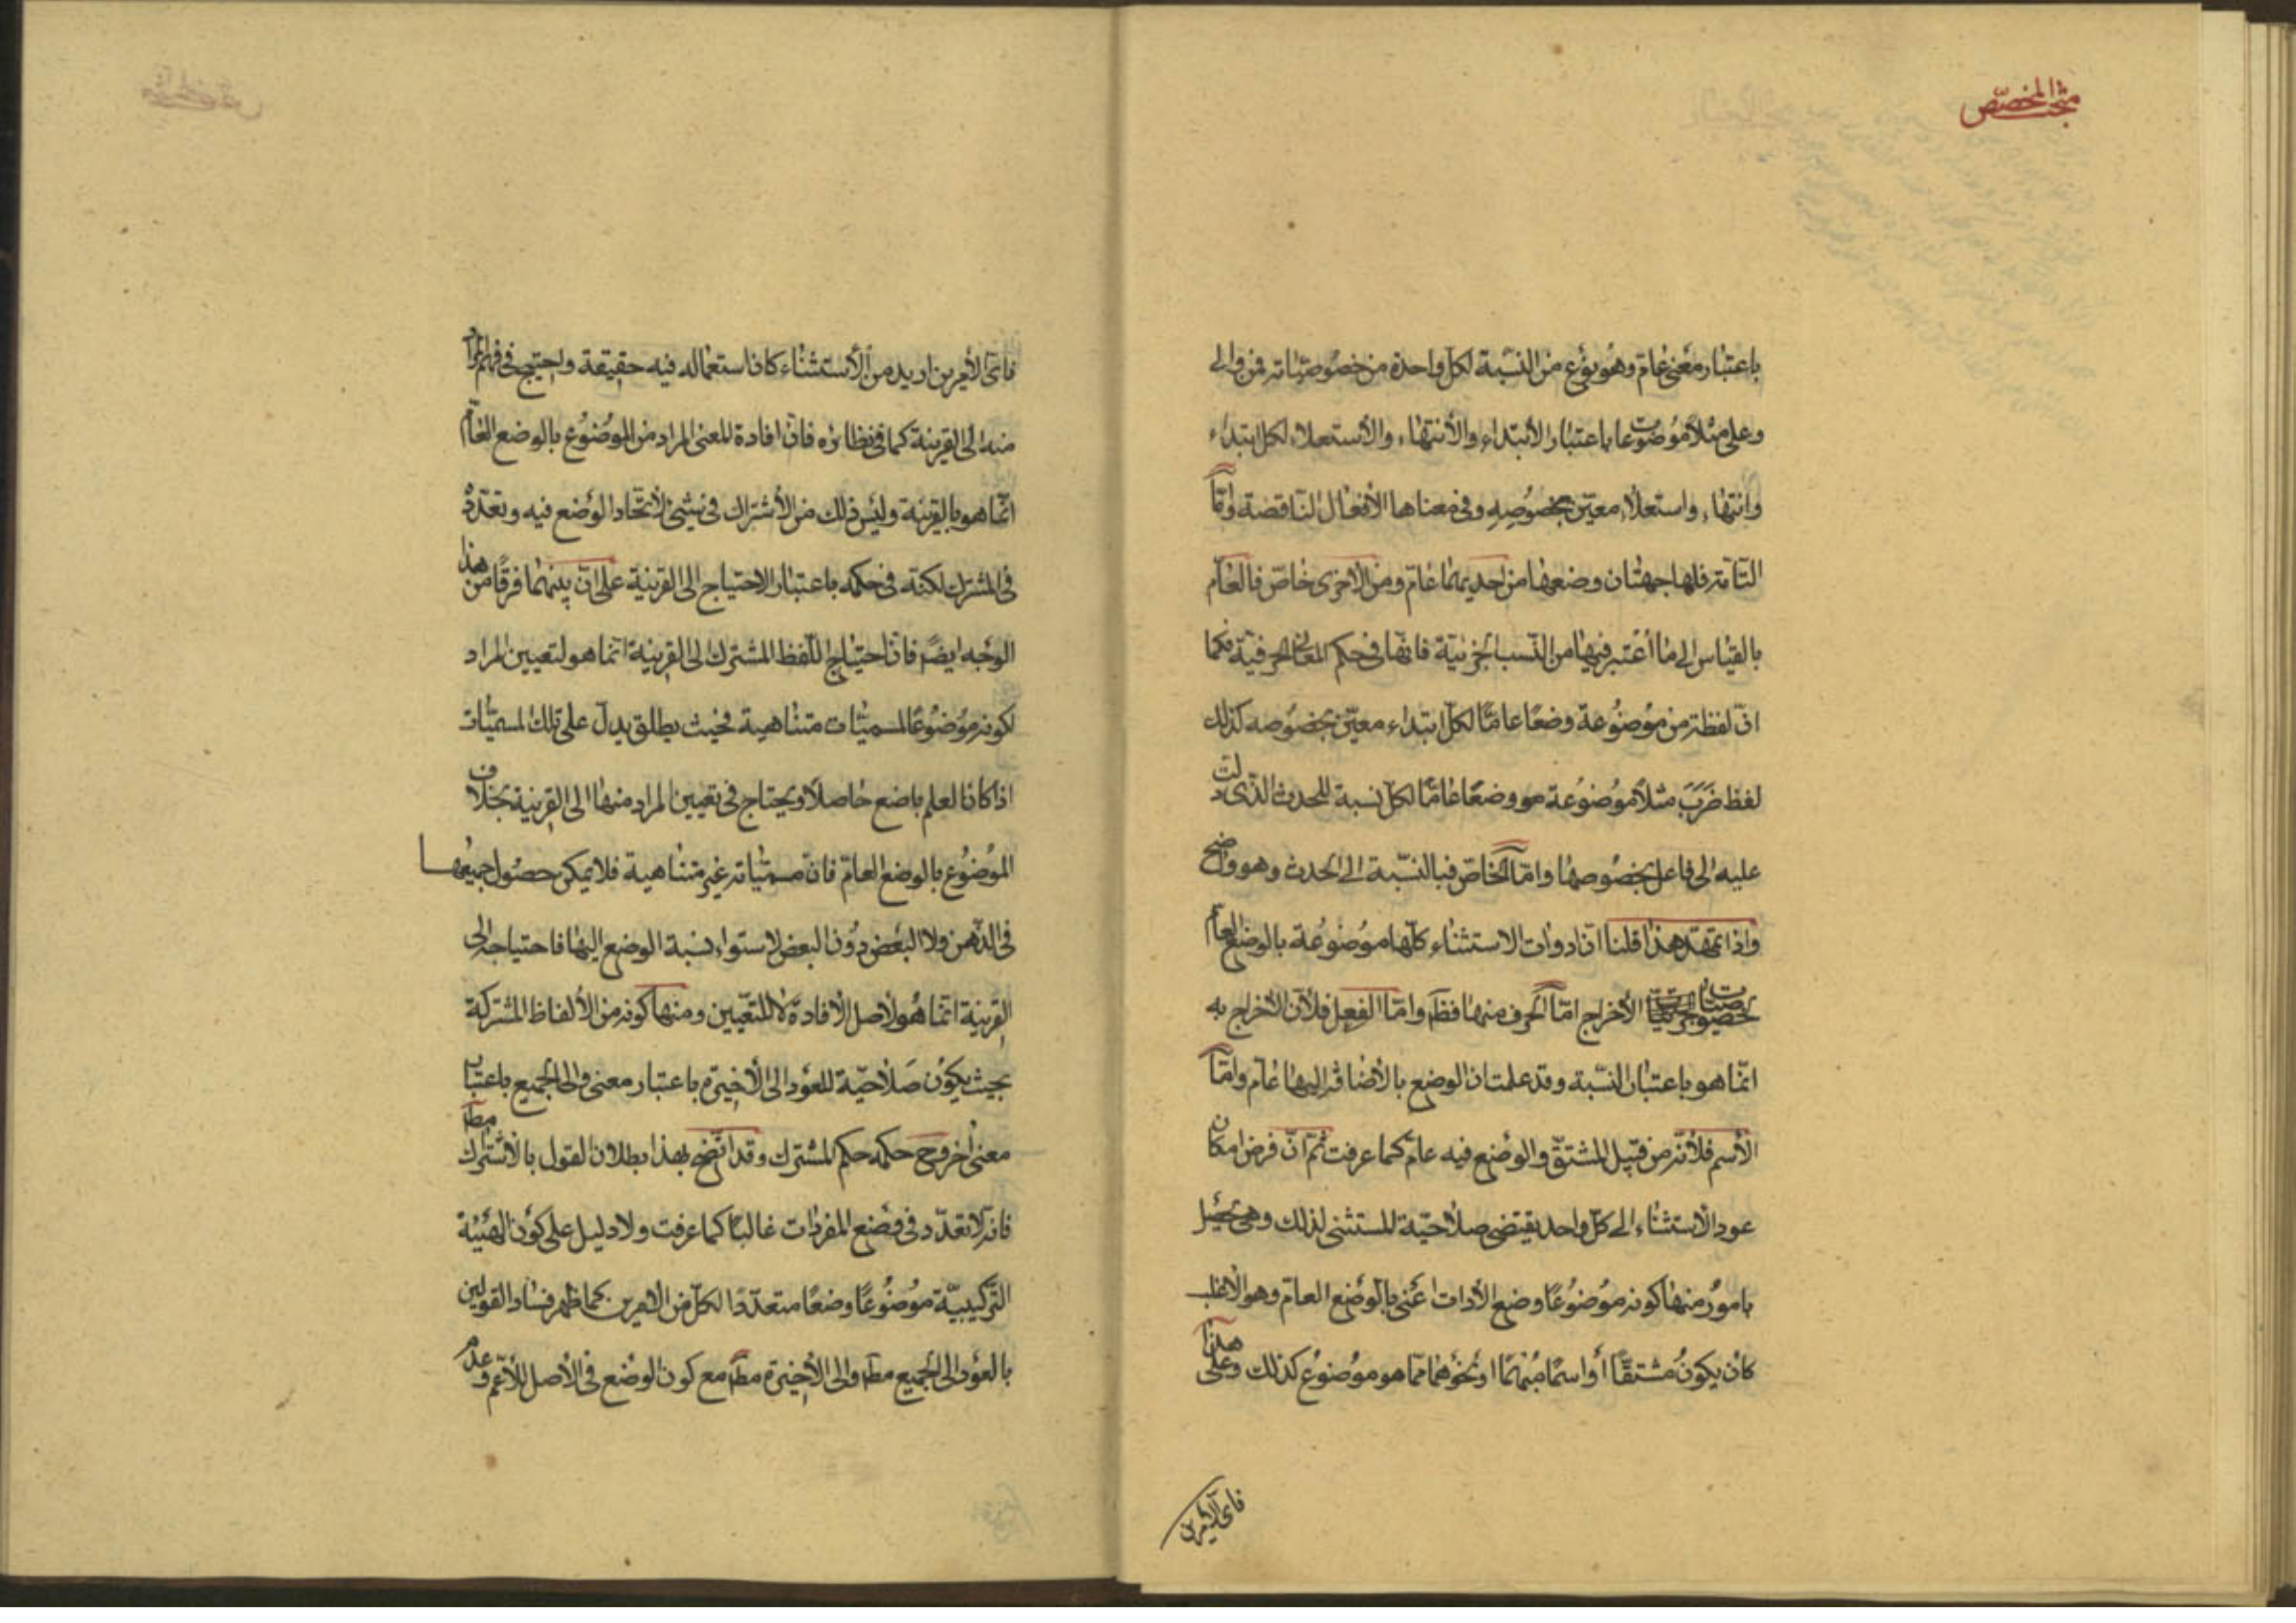 مبحث المخصص
باعتبار معنى عام وهو نوع من النسبة لكل واحدة من خصوصياته فمن والى
وعلى مثلا موضوعات باعتبار الابتداء والانتهاء والاستعلاء لكل ابتداء
وانتهاء واستعلاء معين بخصوصه وفى معناها الافعال الناقصة واما
التامة فلها جهتان وضعها من احديهما عام ومن الاخرى خاص فالعام
بالقياس الى ما اعتبر فيها من النسب الجزئية فانها فى حكم المعانى الحرفية فكما
ان لفظة من موضوعة وضعا عاما لكل ابتداء معين بخصوصه كذلك
لفظ ضرب مثلا موضوعة وضعا عاما لكل نسبة للحدث الذى دلت
عليه الى فاعل بخصوصها واما الخاص فبالنسبة الى الحدث وهو واضح
واذا تمهد هذا قلنا ان ادوات الاستثناء كلها موضوعة بالوضع العام
لخصوصيات الاخراج اما الحرف منها فظ واما الفعل فلان الاخراج به
انما هو باعتبار النسبة وقد علمت ان الوضع بالاضافة اليها عام واما
الاسم فلانه من قبيل المشتق والوضع فيه عام كما عرفت ثم ان فرض امكان
عود الاستثناء الى كل واحد يقتضى صلاحية المستثنى لذلك وهى تحصل
بامور منها كونه موضوعا وضع الادات اعنى بالوضع العام وهو الاغلب
كان يكون مشتقا أو اسما مبهما او نحوهما مما هو موضوع كذلك وعلى هذا
فاى الامرين
فاى الامرين اريد من الاستثناء كان استعماله فيه حقيقة واحتيج فى فهم المراد
منه الى القرينة كما فى نظائره فان افادة المعنى المراد من الموضوع بالوضع العام
انما هو بالقرينة وليس ذلك من الاشتراك فى شيئ لاتحاد الوضع فيه وتعدده
فى المشترك لكنه فى حكمه باعتبار الاحتياج الى القرينة على ان بينهما فرقا من هذا
الوجه ايضا فان احتياج اللفظ المشترك الى القرينة انما هو لتعيين المراد
لكونه موضوعا لمسميات متناهية فحيث يطلق يدل على تلك المسميات
اذا كان العلم باضع حاصلا ويحتاج فى تعيين المراد منها الى القرينة بخلاف
الموضوع بالوضع العام فان مسمياته غير متناهية فلا يمكن حصول جميعها
فى الذهن ولا البعض دون البعض لاستواء نسبة الوضع اليها فاحتياجه الى
القرينة انما هو لاصل الافادة لا للتعيين ومنها كونه من الالفاظ المشتركة
بحيث يكون صلاحية للعود الى الاخيرة باعتبار معنى والى الجميع باعتبار
معنى اخر وح حكمه حكم المشترك وقد اتضح بهذا بطلان القول بالاشتراك مط
فانه لا تعدد فى وضع المفردات غالبا كما عرفت ولا دليل على كون الهيئة
التركيبية موضوعا وضعا متعددا لكل من الامرين كما ظهر فساد القولين
بالعود الى الجميع مط والى الاخيرة مط مع كون الوضع فى الاصل للاعم وعدم